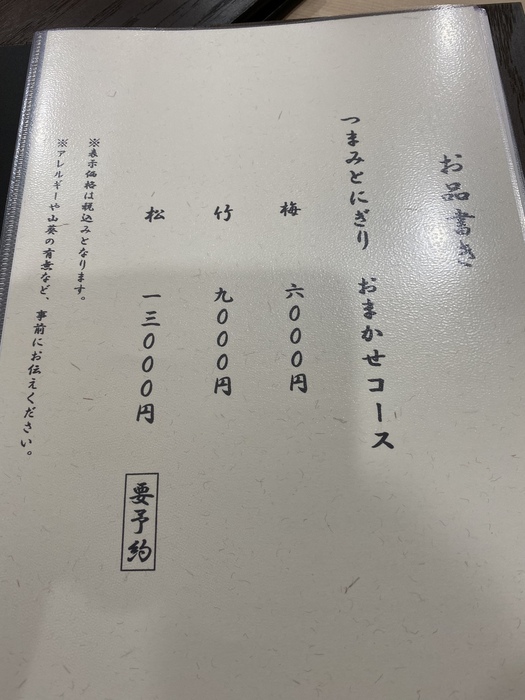 お品書き
つまみとにぎり おまかせコース
梅 六000円
竹 九000円
松 一三000円 要予約
※表示価格は税込みとなります。
※アレルギーや山葵の有無など、事前にお伝えください。